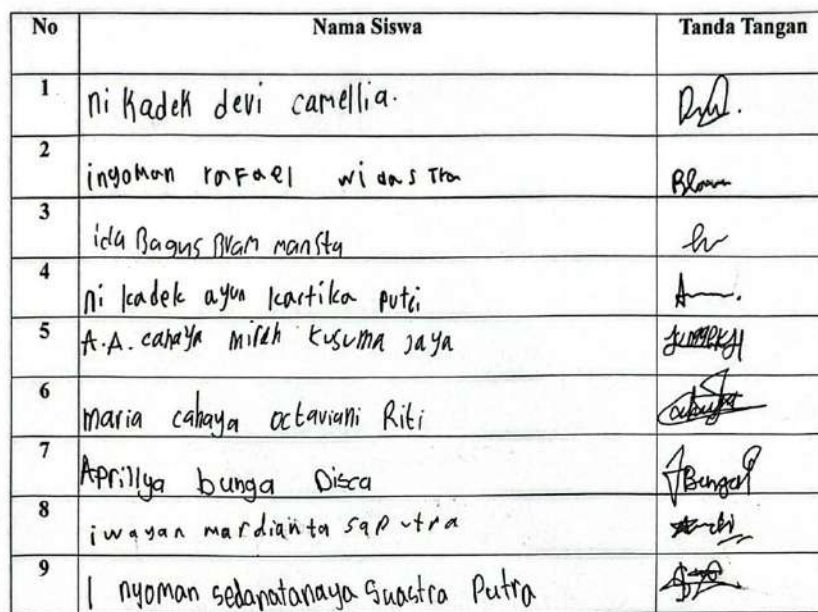 No Nama Siswa Tanda Tangan
1 ni Kadek devi camellia.
2 inyoman rafael widastra
3 ida Bagus Bram mansta
4 ni kadek ayun kartika putri
5 A.A. cahaya mirah kusuma jaya
6 maria cahaya octaviani Riti
7 Aprillya bunga Disca Bunga
8 iwayan mardianta saputra
9 I nyoman sedanatanaya Suastra Putra